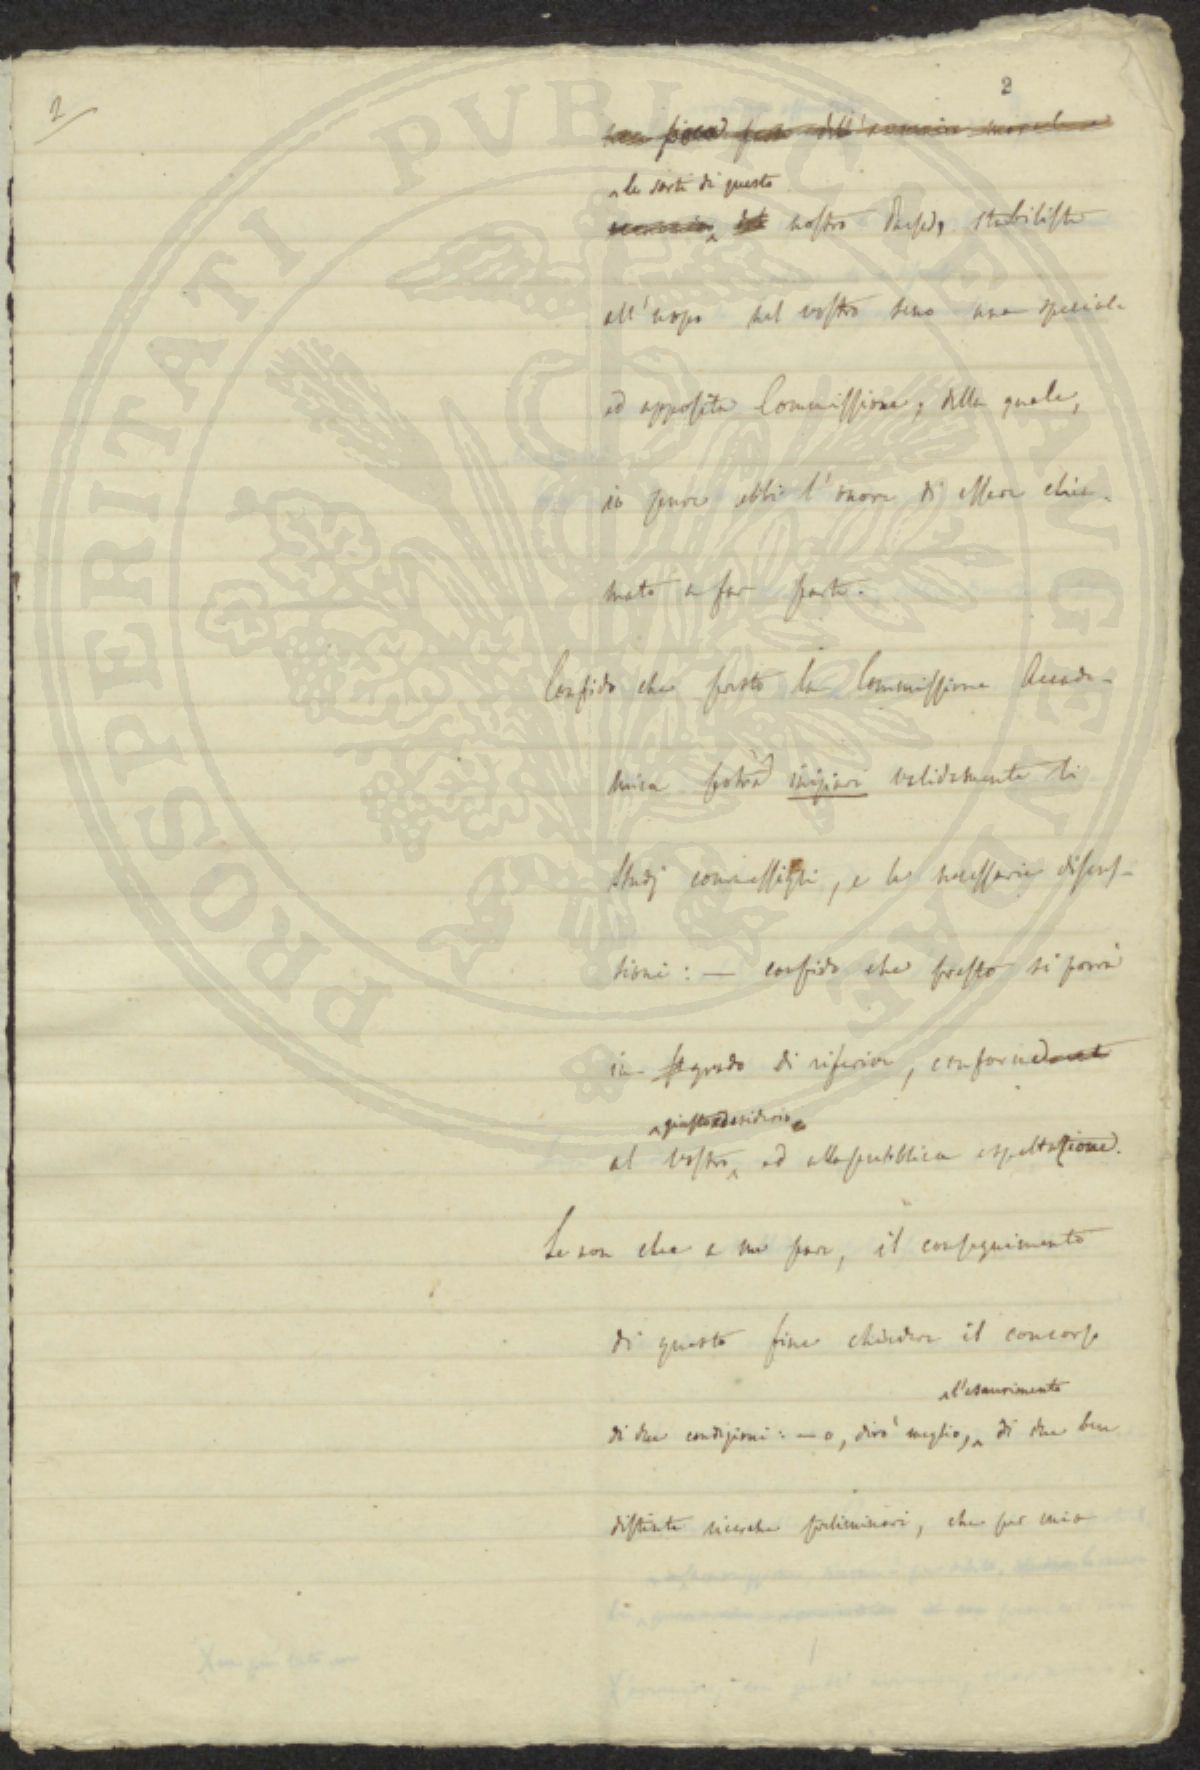 2
2
le sorti di questo
nostro Paese, stabiliste
all'uopo nel vostro seno una speciale
ed apposita Commissione, della quale,
io pure ebbi l'onore di essere chia-
mato a far parte.
Confido che presto la Commissione Accade-
mica potrà iniziare validamente li
studj commessigli, e le necessarie discus-
sioni: — confido che presto si porrà
in grado di riferire, conforme
giusto desiderio
al vostro, ed alla pubblica espettazione.
Se non che a me pare, il conseguimento
di questo fine chiedere il concorso
l'esaurimento
di due condizioni: — o, dirò meglio, di due ben
distinte ricerche preliminari, che per mio
PROSPERITATI PUBLICAE AUGENDAE